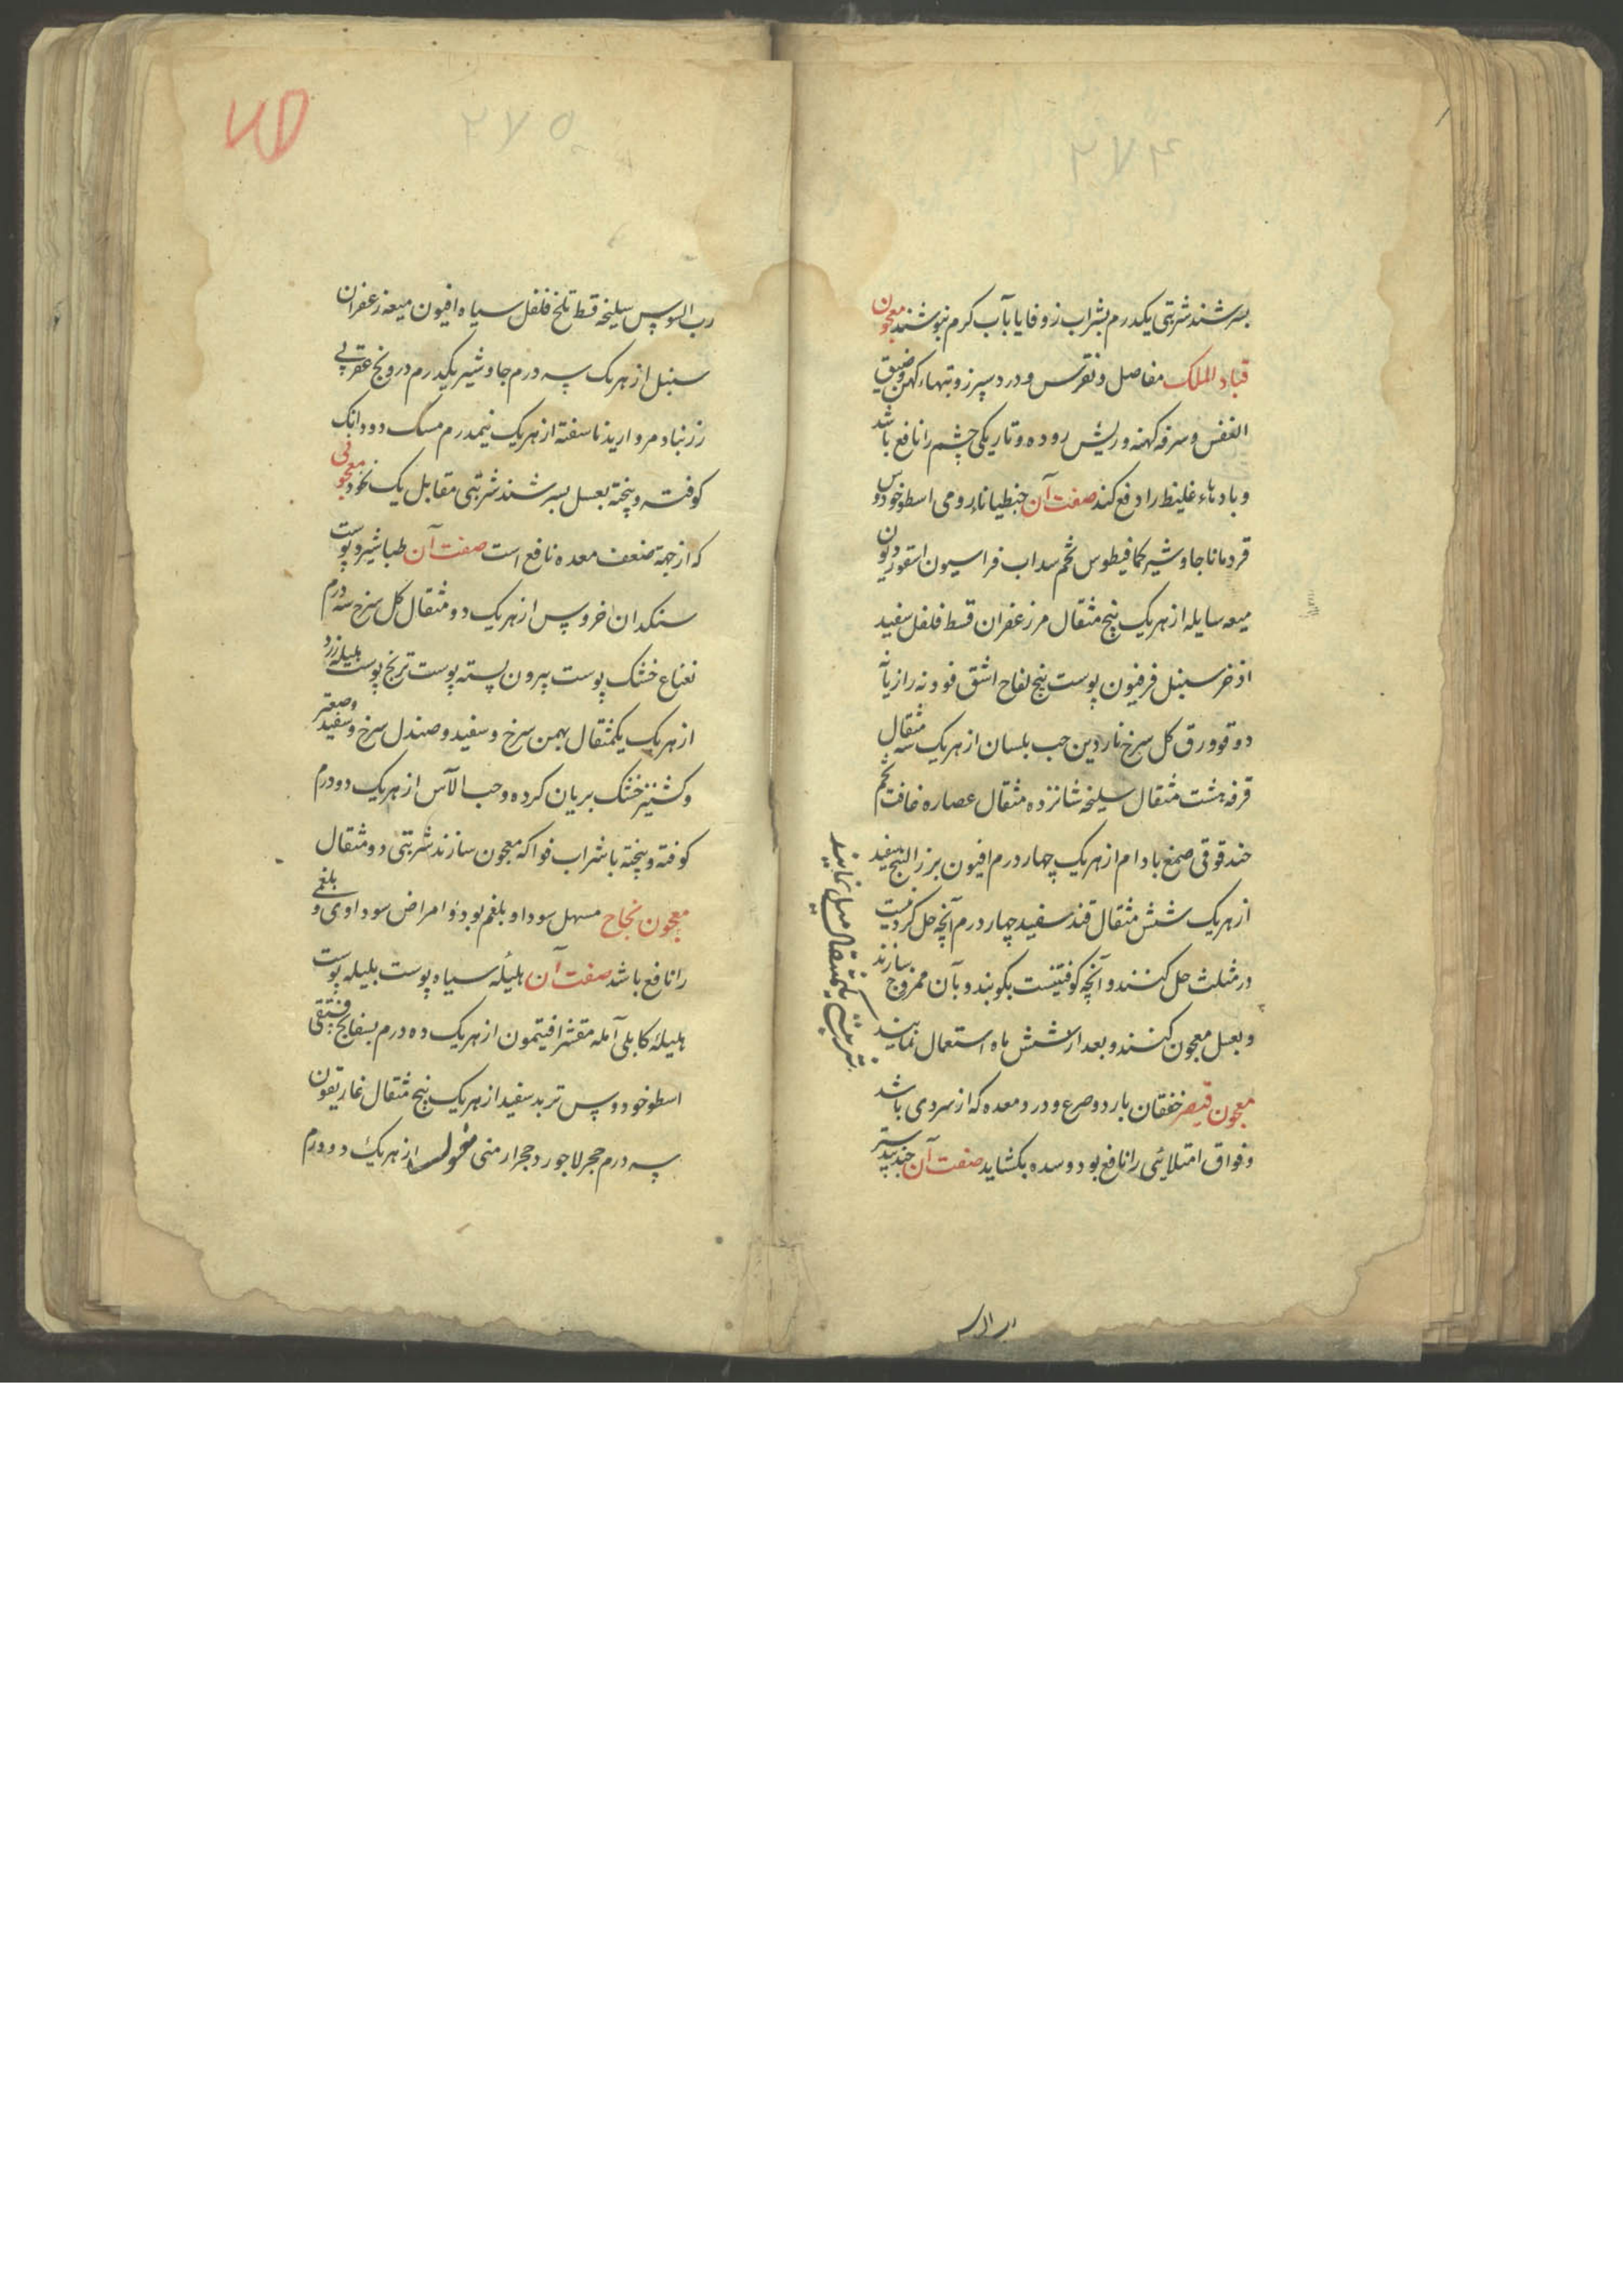 ۲۷۴
بسرشند شربتی یکدرم بشراب زوفا یا بآب کرم بنوشند معجون
قباد الملک مفاصل و نقرس و درد سپرز و تبهاء کهن و ضیق
النفس و سرفه کهنه و ریش روده و تاریکی چشم را نافع باشد
و بادهاء غلیظ را دفع کند صفت آن جنطیاناء رومی اسطوخودوس
قردمانا جاوشیر کمافیطوس تخم سداب فراسیون اسقوردیون
میعه سایله از هر یک پنج مثقال مر زعفران قسط فلفل سفید
اذخر سنبل فرفیون پوست بیخ لفاح اشق فودنه رازیا
دوقو ورق کل سرخ ناردین حب بلسان از هر یک سه مثقال
قرفه هشت مثقال سلیخه شانزده مثقال عصاره غافت تخم
حندقوقی صمغ بادام از هر یک چهار درم افیون بزر البنج سفید
از هر یک شش مثقال قند سفید چهار درم آنچه حل کردنیست
در مثلث حل کنند و آنچه کوفتنیست بکوبند و بآن ممزوج سازند
و بعسل معجون کنند و بعد از شش ماه استعمال نمایند
شربتی یکمثقال میل نمایند
معجون قیصر خفقان بارد و صرع و درد معده که از سردی باشد
و فواق امتلائی را نافع بود و سده بکشاید صفت آن جندبیدستر
رب السوس
۲۷۵
رب السوس سلیخه قسط تلخ فلفل سیاه افیون میعه زعفران
سنبل از هر یک سه درم جاوشیر یکدرم درونج عقربی
زرنباد مروارید ناسفته از هر یک نیمدرم مسک دو دانک
کوفته و پخته بعسل بسرشند شربتی مقابل یک نخود معجونی
که از جهة ضعف معده نافع است صفت آن طباشیر و پوست
سنکدان خروس از هر یک دو مثقال کل سرخ سه درم
نعناع خشک پوست بیرون پسته پوست ترنج پوست هلیله زرد
از هر یک یکمثقال بهمن سرخ و سفید و صندل سرخ و سفید و صعتر
و کشنیز خشک بریان کرده و حب الآس از هر یک دو درم
کوفته و پخته با شراب فواکه معجون سازند شربتی دو مثقال
معجون نجاح مسهل سودا و بلغم بود و امراض سوداوی و بلغمی
را نافع باشد صفت آن هلیله سیاه پوست بلیله پوست
هلیله کابلی آمله مقشر افتیمون از هر یک ده درم بسفایج فستقی
اسطوخودوس تربد سفید از هر یک پنج مثقال غاریقون
سه درم حجر لاجورد حجر ارمنی مغسول از هر یک دو درم